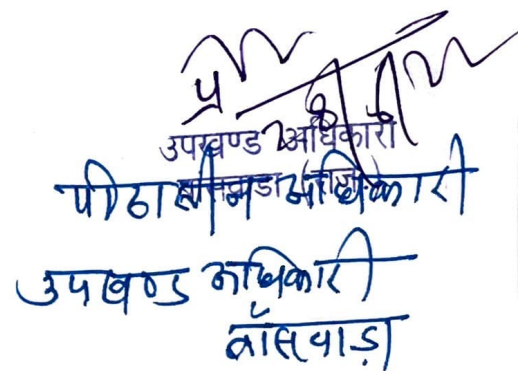 प्र
उपखण्ड अधिकारी
बांसवाडा (राज.)
पीठासीन अधिकारी
उपखण्ड अधिकारी
बाँसवाड़ा